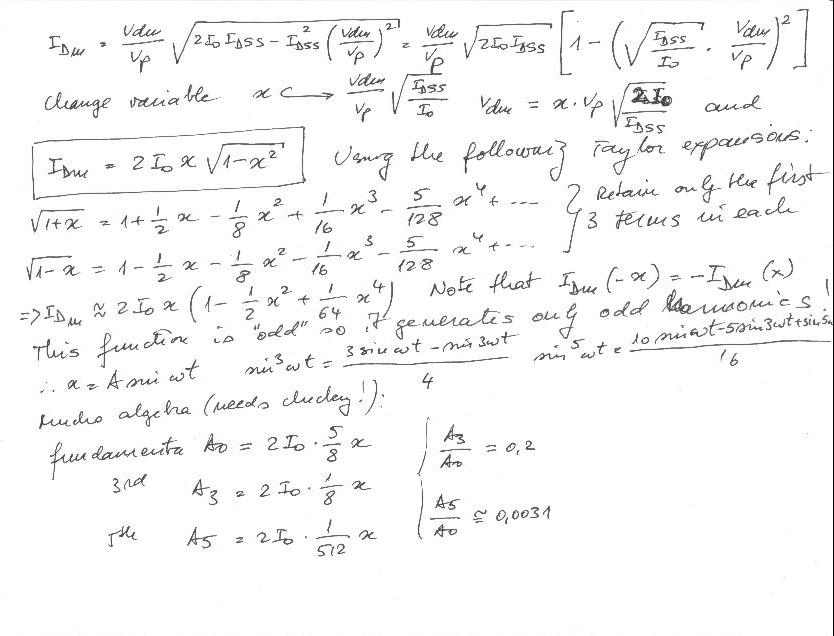 I_Dm = Vdm/Vp √(2I0 IDSS - I²DSS (Vdm/Vp)²) = Vdm/Vp √(2I0IDSS) [1 - (√(IDSS/I0) · Vdm/Vp)²]
Change variable x ⊂→ Vdm/Vp √(IDSS/I0) Vdm = x · Vp √(2I0/IDSS) and
I_Dm = 2I0 x √(1-x²) Using the following Taylor expansions:
√(1+x) = 1 + 1/2 x - 1/8 x² + 1/16 x³ - 5/128 x⁴ + ... } Retain only the first
√(1-x) = 1 - 1/2 x - 1/8 x² - 1/16 x³ - 5/128 x⁴ + ... } 3 terms in each
=> I_Dm ≈ 2I0 x (1 - 1/2 x² + 1/64 x⁴) Note that I_Dm(-x) = -I_Dm(x)
This function is "odd" so it generates only odd harmonics!
∴ x = A sin ωt sin³ωt = (3 sin ωt - sin 3ωt)/4 sin⁵ωt = (10 sin ωt - 5 sin 3ωt + sin 5ω)/16
Mucho algebra (needs checking!):
fundamenta A0 = 2I0 · 5/8 x { A3/A0 = 0,2
3rd A3 = 2I0 · 1/8 x
5th A5 = 2I0 · 1/512 x { A5/A0 ≅ 0,0031